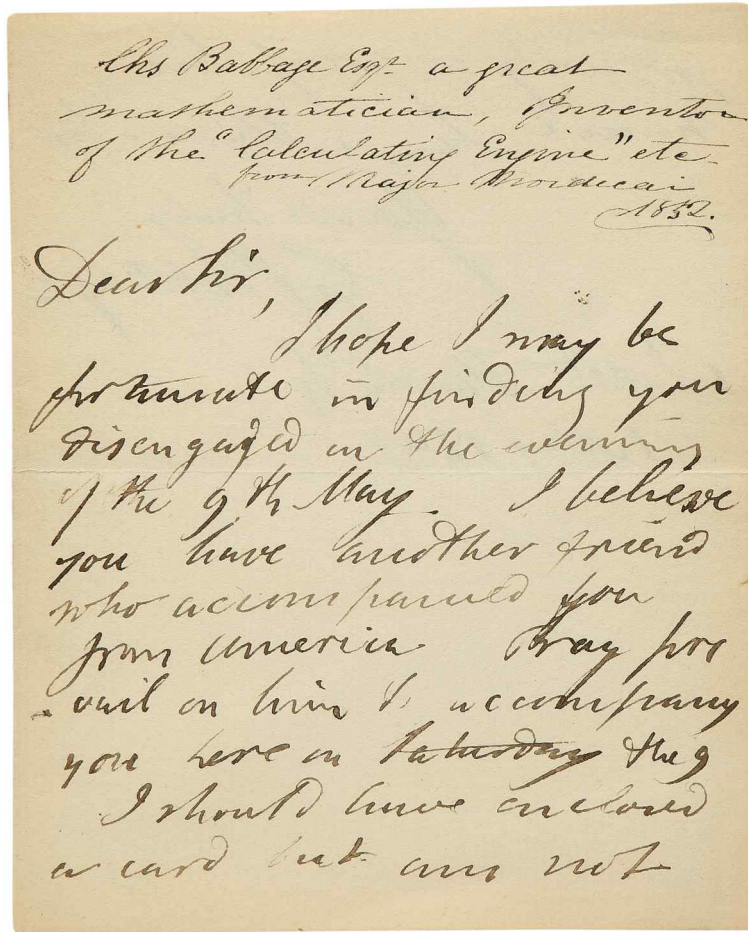 Chs Babbage Esqr a great
mathematician, Inventor
of the "Calculating Engine" etc
from Major Mordecai
1852.
Dear Sir,
I hope I may be
fortunate in finding you
disengaged on the evening
of the 9th May. I believe
you have another friend
who accompanied you
from America Pray pre
vail on him to accompany
you here on Saturday the 9
I should have enclosed
a card but am not